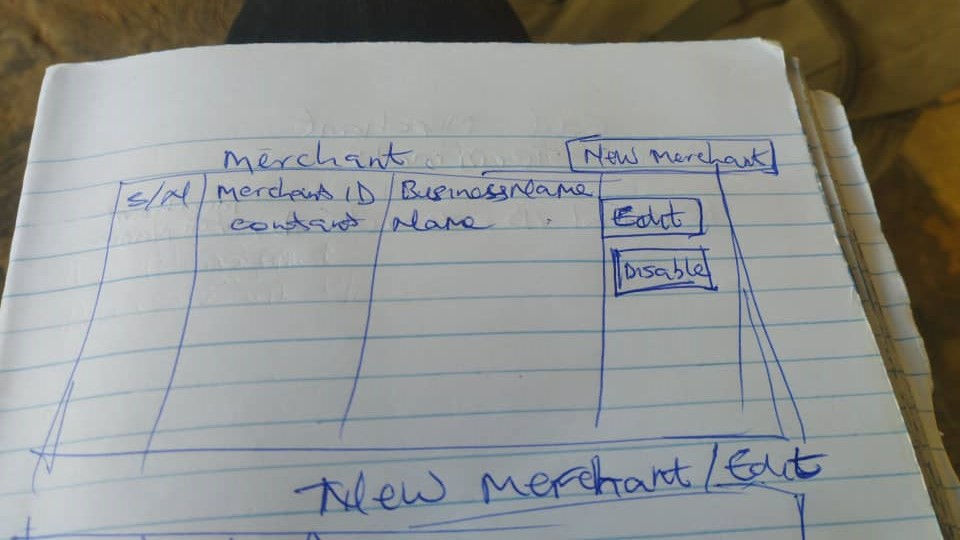 Merchant
New Merchant
S/N Merchant ID Business Name
constant Name
Edit
Disable
New Merchant/Edit